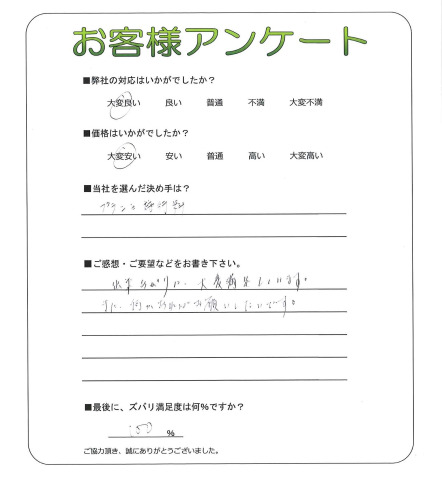 お客様アンケート
■弊社の対応はいかがでしたか？
大変良い 良い 普通 不満 大変不満
■価格はいかがでしたか？
大変安い 安い 普通 高い 大変高い
■当社を選んだ決め手は？
■ご感想・ご要望などをお書き下さい。
出来上がりに、大変満足しています。
また、何かあればお願いしたいです。
■最後に、ズバリ満足度は何%ですか？
100 %
ご協力頂き、誠にありがとうございました。